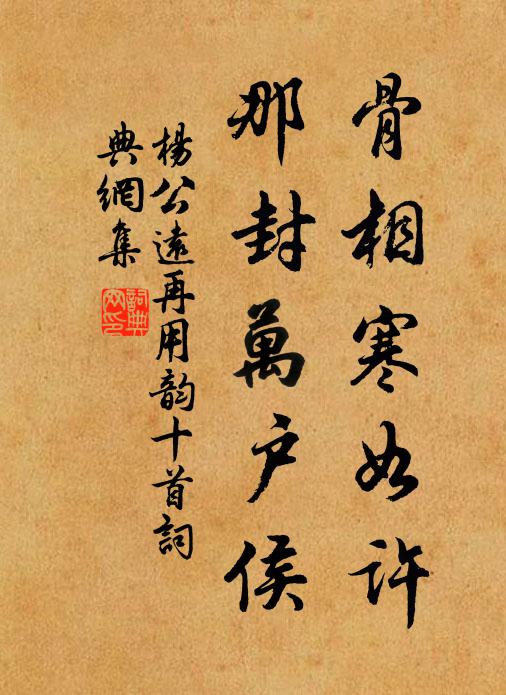 骨相寒如许
那封萬户侯
楊公遠再用韵十首詞
典網集
詞典網印